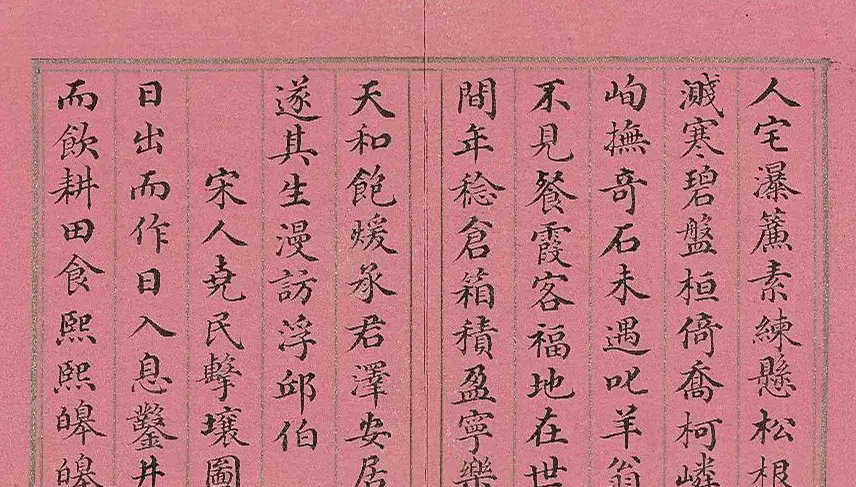 人宅瀑簾素練懸松根
濺寒碧盤桓倚喬柯嶙
峋撫奇石未遇叱羊翁
不見餐霞客福地在世
間年稔倉箱積盈寧樂
天和飽煖承君澤安居
遂其生漫訪浮邱伯
宋人堯民擊壤圖
日出而作日入息鑿井
而飲耕田食熙熙皞皞